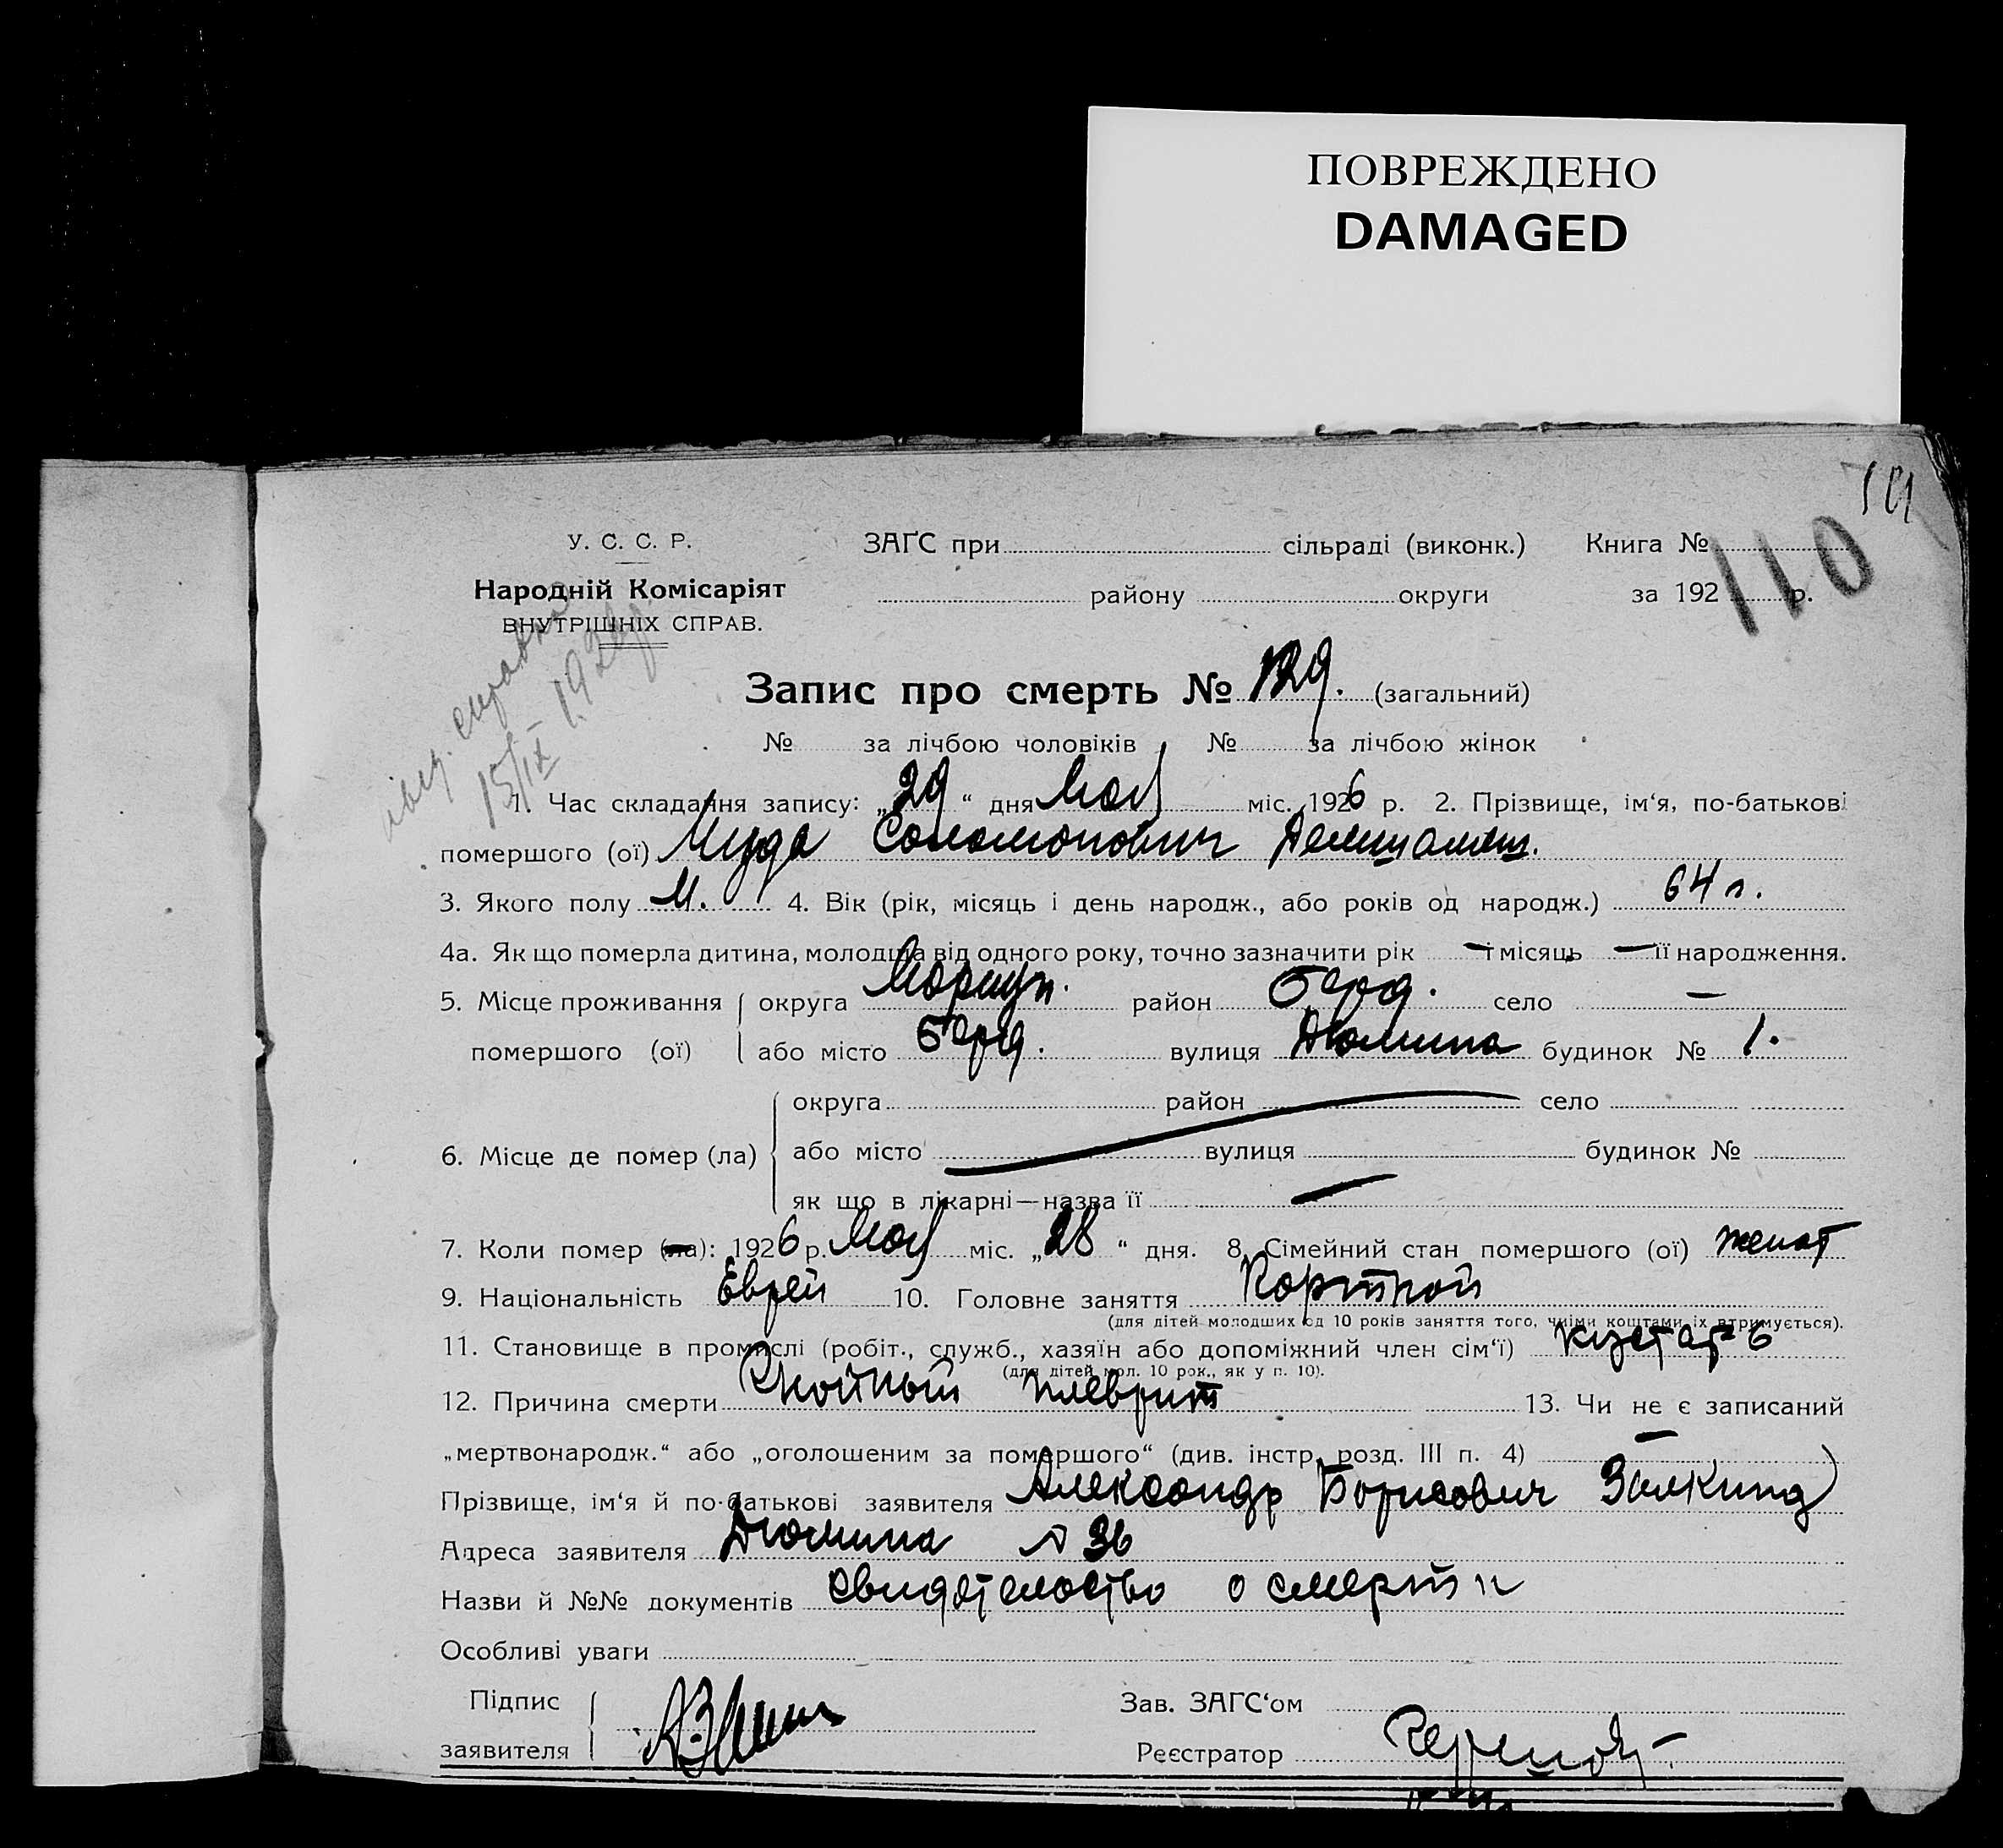 ПОВРЕЖДЕНО
DAMAGED
110
У. С. С. Р.
ЗАҐС при сільраді (виконк.) Книга №
Народній Комісаріят
району округи за 192 р.
ВНУТРІШНІХ СПРАВ.
справка
15/IX
Запис про смерть № 129. (загальний)
№ за лічбою чоловіків № за лічбою жінок
1. Час складання запису: „29“ дня Мая міс. 1926 р. 2. Прізвище, ім‘я, по-батькові
помершого (ої) Соломонович
3. Якого полу М. 4. Вік (рік, місяць і день народж., або років од народж.) 64 л.
4а. Як що померла дитина, молодша від одного року, точно зазначити рік — і місяць — її народження.
5. Місце проживання округа Мариуп. район Берд. село —
помершого (ої) або місто Берд. вулиця Дюмина будинок № 1.
округа район село
6. Місце де помер (ла) або місто вулиця будинок №
як що в лікарні—назва її —
7. Коли помер (ла): 1926 р. Мая міс. „28“ дня. 8. Сімейний стан помершого (ої) женат
9. Національність Еврей 10. Головне заняття Портной
(для дітей молодших од 10 років заняття того, чиїми коштами їх втримується).
11. Становище в промислі (робіт., служб., хазяїн або допоміжний член сім‘ї) кустарь
(для дітей мол. 10 рок., як у п. 10).
12. Причина смерти Гнойный плеврит 13. Чи не є записаний
„мертвонародж.“ або „оголошеним за помершого“ (див. інстр. розд. III п. 4) —
Прізвище, ім‘я й по-батькові заявителя Александр Борисович Залкинд
Адреса заявителя Дюмина № 36
Назви й №№ документів свидетельство о смерти
Особливі уваги
Підпис Зав. ЗАГС‘ом
заявителя Реєстратор